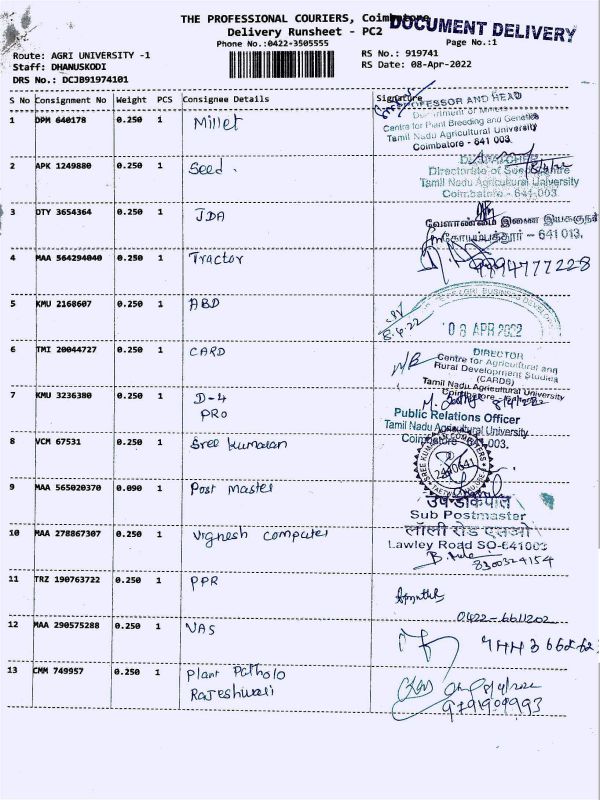 THE PROFESSIONAL COURIERS, Coimbatore
DOCUMENT DELIVERY
Delivery Runsheet - PC2
Phone No.:0422-3505555
Page No.:1
Route: AGRI UNIVERSITY -1
RS No.: 919741
Staff: DHANUSKODI
RS Date: 08-Apr-2022
DRS No.: DCJB91974101
S No Consignment No Weight PCS Consignee Details Signature
1 DPM 640178 0.250 1 Millet
PROFESSOR AND HEAD
Department of Millets
Centre for Plant Breeding and Genetics
Tamil Nadu Agricultural University
Coimbatore - 641 003.
2 APK 1249880 0.250 1 Seed.
Directorate of Seed Centre
Tamil Nadu Agricultural University
Coimbatore - 641 003
3 DTY 3654364 0.250 1 JDA
வேளாண்மை இணை இயக்குநர்
கோயம்புத்தூர் - 641 013.
4 MAA 564294040 0.250 1 Tractor
9994777228
5 KMU 2168607 0.250 1 ABD
8.4.22
08 APR 2022
6 TMI 20044727 0.250 1 CARD
DIRECTOR
Centre for Agricultural and
Rural Development Studies
(CARDS)
Tamil Nadu Agricultural University
7 KMU 3236380 0.250 1 D-4
PRO
Public Relations Officer
Tamil Nadu Agricultural University
Coimbatore - 641 003.
8 VCM 67531 0.250 1 Sree Kumaran
SREE KUMARAN COMPUTERS
2440641
9 MAA 565020370 0.090 1 Post Master
उप-डाकपाल
Sub Postmaster
लॉली रोड एसओ
Lawley Road SO-641003
10 MAA 278867307 0.250 1 Vignesh computer
8300324154
11 TRZ 190763722 0.250 1 PPR
0422-6611202
12 MAA 290575288 0.250 1 VAS
13 CMM 749957 0.250 1 Plant Patholo
Rajeshwari
8/4/2022
9791909993